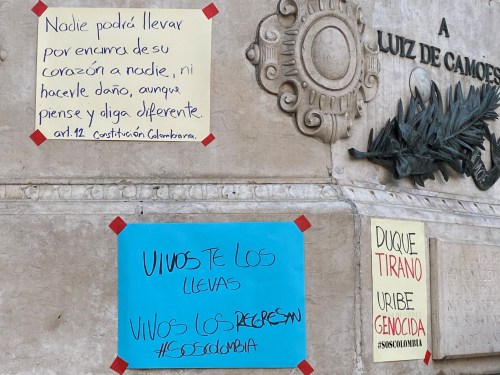 Nadie podrá llevar
por encima de su
corazón a nadie, ni
hacerle daño, aunque
piense y diga diferente.
art. 12 Constitución Colombiana.
A
LUIZ DE CAMOES
VIVOS TE LOS
LLEVAS
VIVOS LOS REGRESAN
#SOSCOLOMBIA
DUQUE
TIRANO
URIBE
GENOCIDA
#SOSCOLOMBIA